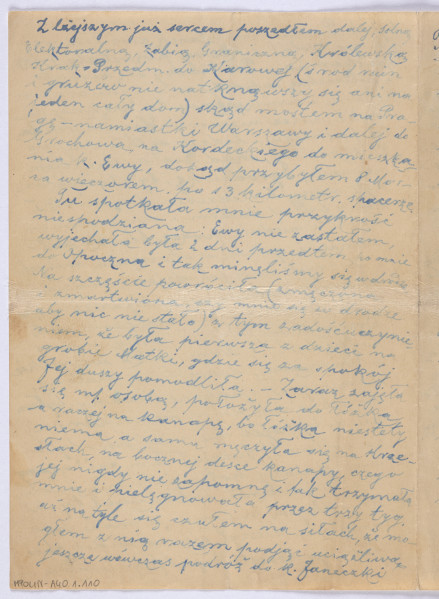 Z lżejszym już sercem poszedłem dalej, Solną
Elektoralną, Żabią, Graniczną, Królewską
Krak. Przedm. do Karowej (śród ruin
i gruzów nie natknąwszy się ani na
jeden cały dom) skąd mostem na Pra-
gę - namiastki Warszawy i dalej do
Grochowa na Kordeckiego do mieszka-
nia k. Ewy, dokąd przybyłem 8
wieczorem, bo 13 kilometr. spacerze
Tu spotkała mnie przykrość
niespodziana: Ewy nie zastałem,
wyjechała była 2 dni przedtem po mnie
do Opoczna i tak minęliśmy się w drodze
Na szczęście powróciła (zmęczona
i zmartwiona, czy mnie się w drodze
aby nic nie stało) z tym zadośćuczynie
niem, że była pierwsza z dzieci na
grobie Matki, gdzie się za spokój
Jej duszy pomodliła. - Zaraz zajęła
się mą osobą, położyła do łóżka
a raczej na kanapę, bo łóżka niestety
niema, a sama męczyła się na krze-
słach, na bocznej desce kanapy, czego
jej nigdy nie zapomnę i tak trzymała
mnie i pielęgnowała przez trzy tyg.
aż na tyle się czułem na siłach, że mo
głem z nią razem podjąć uciążliwą
jeszcze wówczas podróż do k. Janeczki
1.110